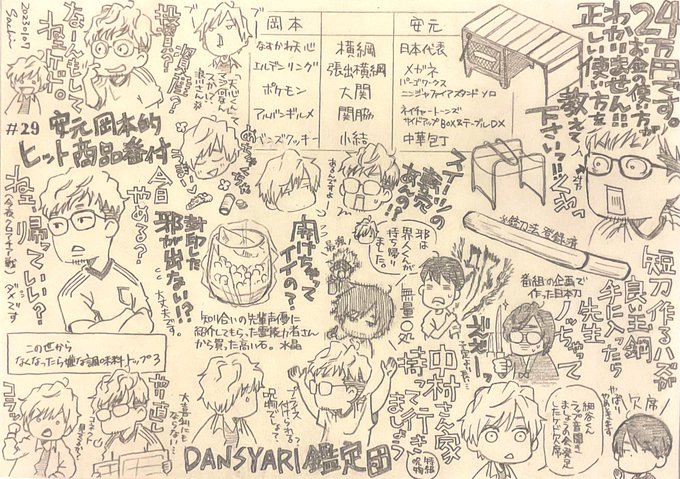 20230107
Sachi
#29
安元岡本的
ヒット商品番付
岡本
安元
なすかわ天心
横綱
日本代表
エルデンリング
張出横綱
メガネ
ポケモン
大関
パーゴワークス
ニンジャファイアスタンド ソロ
アルバンギルメ
関脇
ネイチャートーンズ
サイドアップBOX&テーブルDX
小結
中華包丁
24万円です。
お金の使い方が
わかいません!!!
正しい使い方を
教えて
下さいっ!!!
投資?
資産?
なーんもして
ねェゾだ。
今日
やめる?
ねェ、帰っていい?
ダメです
封印した
邪が出ない!?
大丈夫です。
開けちゃって
イイの?
知り合いの先輩声優に
紹介してもらった霊能力者さん
から買った高い石。水晶
邪は
界人くんが
持ち帰り
ました。
無量〇処
銃刀法 登録済
番組の企画で
作った日本刀
短刀作るハズが
良い玉鋼
手に入ったら
先生
ノッちゃって
中村さん家
持って行き
ましょう
特級
呪物
この世から
なくなったら嫌な調味料トップ3
やり直し
コラッ
DANSYARI鑑定団
細谷くん
ラップ音聞き
ましょうの会発足
したケド欠席
やっぱり
欠席